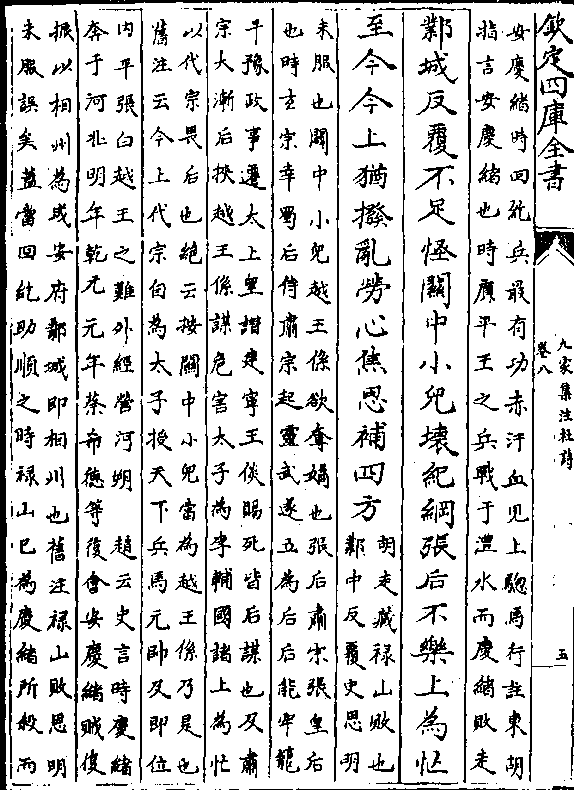 欽定四庫全書
九家集注杜詩
卷八
五
安慶緒時回紇兵最有功赤汗血見上驄馬行註東胡
指言安慶緒也時廣平王之兵戰于灃水而慶緒敗走
鄴城反覆不足怪關中小兒壞紀綱張后不樂上為忙
至今今上猶撥亂勞心焦思補四方
胡走藏祿山敗也
鄴中反覆史思明
未服也關中小兒越王係欲奪嫡也張后肅宗張皇后
也時玄宗幸蜀后侍肅宗起靈武遂立為后后能牢籠
干豫政事遷太上皇譖建寧王倓賜死皆后謀也及肅
宗大漸后挾越王係謀危害太子為李輔國諸上為忙
以代宗畏后也絶云按關中小兒當為越王係乃是也
舊注云今上代宗自為太子授天下兵馬元帥及即位
内平張白越王之難外經營河朔 趙云史言時慶緒
奔于河北明年乾元元年蔡希德等復會安慶緒賊復
振以相州為成安府鄴城即相川也舊注祿山敗思明
未服誤矣蓋當回紇助順之時祿山已為慶緒所殺而